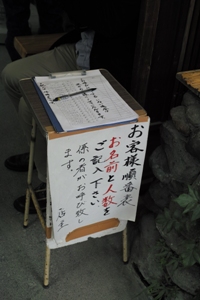 お客様順番表
お名前と人数を
ご記入下さい
係の者がお呼び致し
ます。
店主